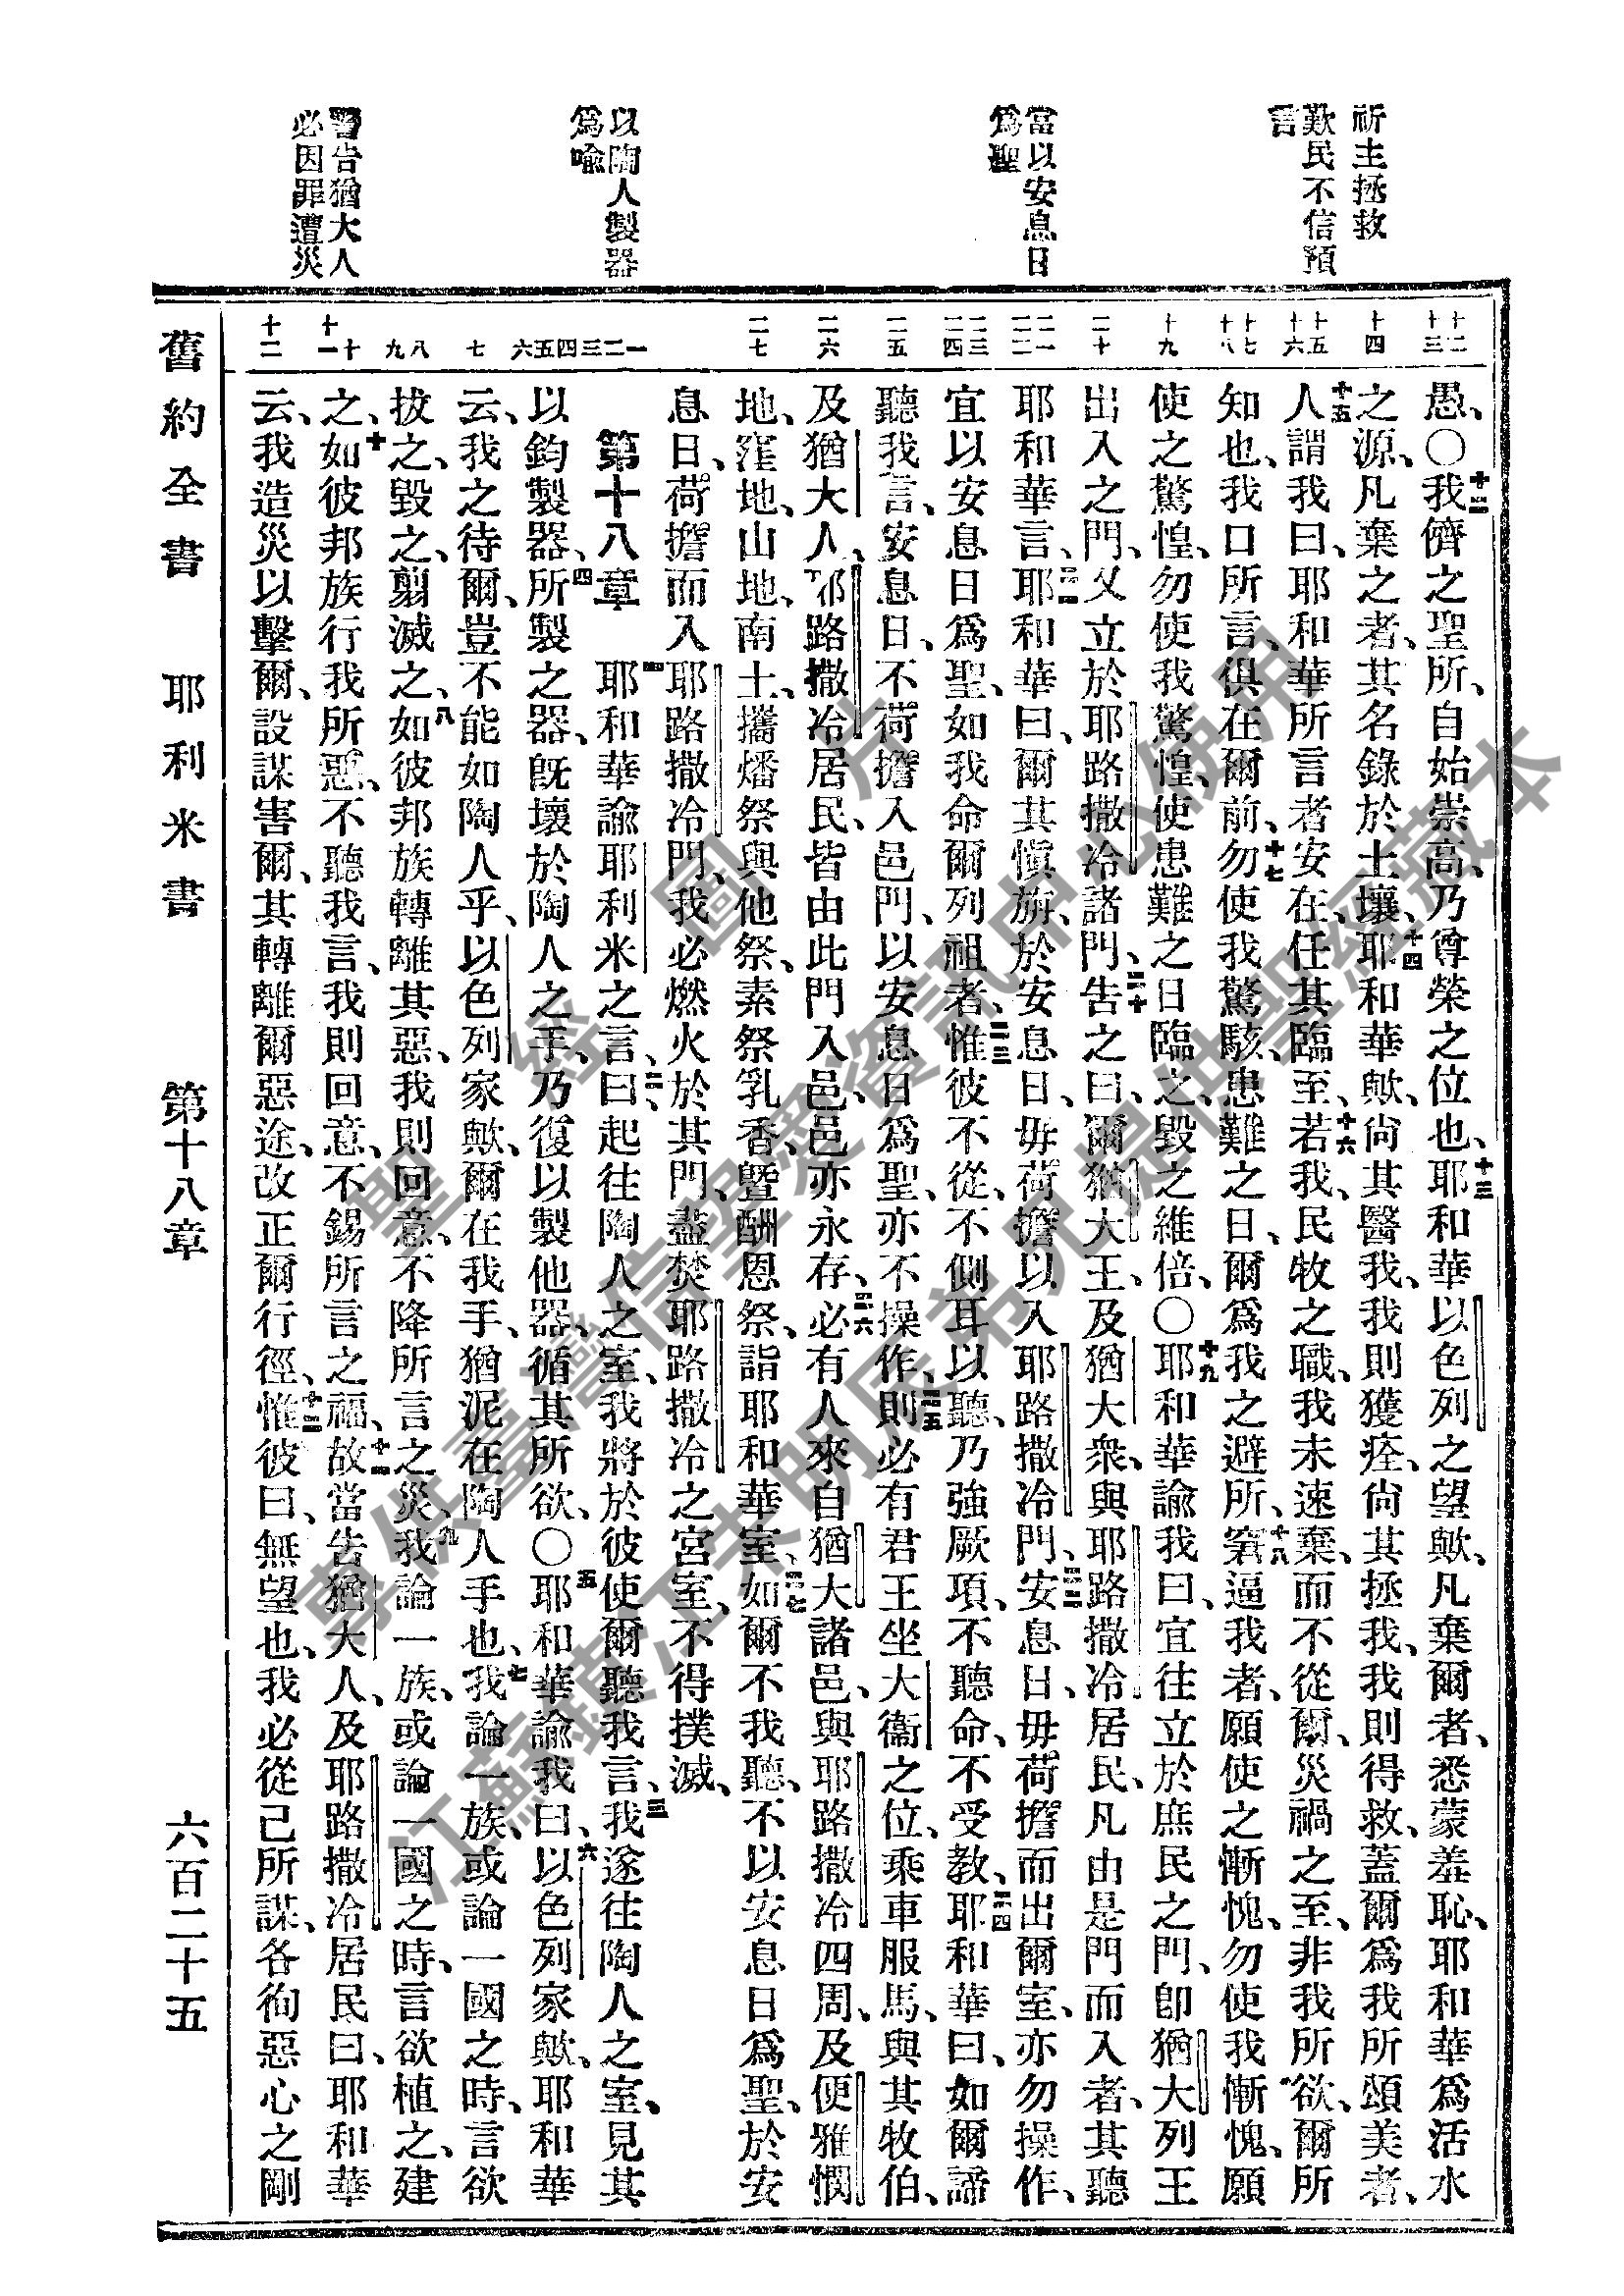 祈主拯救
歎民不信預
言
當以安息日
爲聖
以陶人製器
爲喩
警告猶大人
必因罪遭災
十二
十三
十四
十五
十六
十七
十八
十九
二十
二一
二二
二三
二四
二五
二六
二七
一
二
三
四
五
六
七
八
九
十
十一
十二
愚、〇十二我儕之聖所、自始崇高、乃尊榮之位也、十三耶和華以色列之望歟、凡棄爾者、悉蒙羞恥、耶和華爲活水
之源、凡棄之者、其名錄於土壤、十四耶和華歟、尙其醫我、我則獲痊、尙其拯我、我則得救、蓋爾爲我所頌美者、
十五人謂我曰、耶和華所言者安在、任其臨至、十六若我、民牧之職、我未速棄、而不從爾、災禍之至、非我所欲、爾所
知也、我口所言、俱在爾前、十七勿使我驚駭、患難之日、爾爲我之避所、十八窘逼我者、願使之慚愧、勿使我慚愧、願
使之驚惶、勿使我驚惶、使患難之日臨之、毀之維倍、〇十九耶和華諭我曰、宜往立於庶民之門、卽猶大列王
出入之門、又立於耶路撒冷諸門、二十吿之曰、爾猶大王、及猶大衆、與耶路撒冷居民、凡由是門而入者、其聽
耶和華言、二一耶和華曰、爾其愼旃、於安息日、毋荷擔以入耶路撒冷門、二二安息日、毋荷擔而出爾室、亦勿操作、
宜以安息日爲聖、如我命爾列祖者、二三惟彼不從、不側耳以聽、乃強厥項、不聽命、不受教、二四耶和華曰、如爾諦
聽我言、安息日、不荷擔入邑門、以安息日爲聖、亦不操作、二五則必有君王坐大衞之位、乘車服馬、與其牧伯、
及猶大人、耶路撒冷居民、皆由此門入邑、邑亦永存、二六必有人來自猶大諸邑、與耶路撒冷四周、及便雅憫
地、窪地、山地、南土、攜燔祭與他祭、素祭乳香、曁酬恩祭、詣耶和華室、二七如爾不我聽、不以安息日爲聖、於安
息日、荷擔而入耶路撒冷門、我必燃火於其門、盡焚耶路撒冷之宮室、不得撲滅、
第十八章 一耶和華諭耶利米之言、二曰、起往陶人之室、我將於彼使爾聽我言、三我遂往陶人之室、見其
以鈞製器、四所製之器、旣壞於陶人之手、乃復以製他器、循其所欲、〇五耶和華諭我曰、六以色列家歟、耶和華
云、我之待爾、豈不能如陶人乎、以色列家歟、爾在我手、猶泥在陶人手也、七我論一族、或論一國之時、言欲
拔之、毀之、翦滅之、八如彼邦族轉離其惡、我則回意、不降所言之災、九我論一族、或論一國之時、言欲植之、建
之、十如彼邦族行我所惡、不聽我言、我則回意、不錫所言之福、十一故當吿猶大人、及耶路撒冷居民曰、耶和華
云、我造災以擊爾、設謀害爾、其轉離爾惡途、改正爾行徑、十二惟彼曰、無望也、我必從己所謀、各徇惡心之剛
舊約全書 耶利米書 第十八章 六百二十五
聖經圖片
信望愛資訊中心使用
江蘇鎮江朱明辰弟兄提供聖經藏本